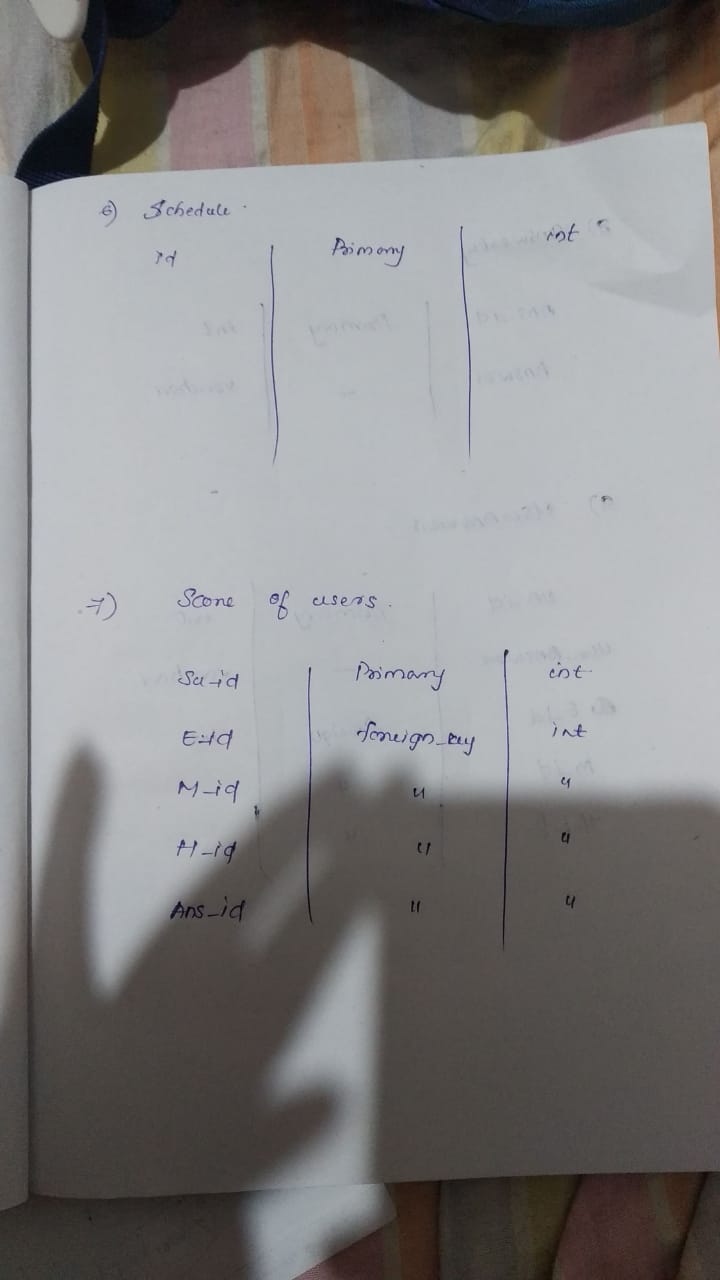 6) Schedule.
id Primary int
7) Score of users.
Su-id Primary int
E-id foreign-key int
M-id " "
H-id " "
Ans-id " "